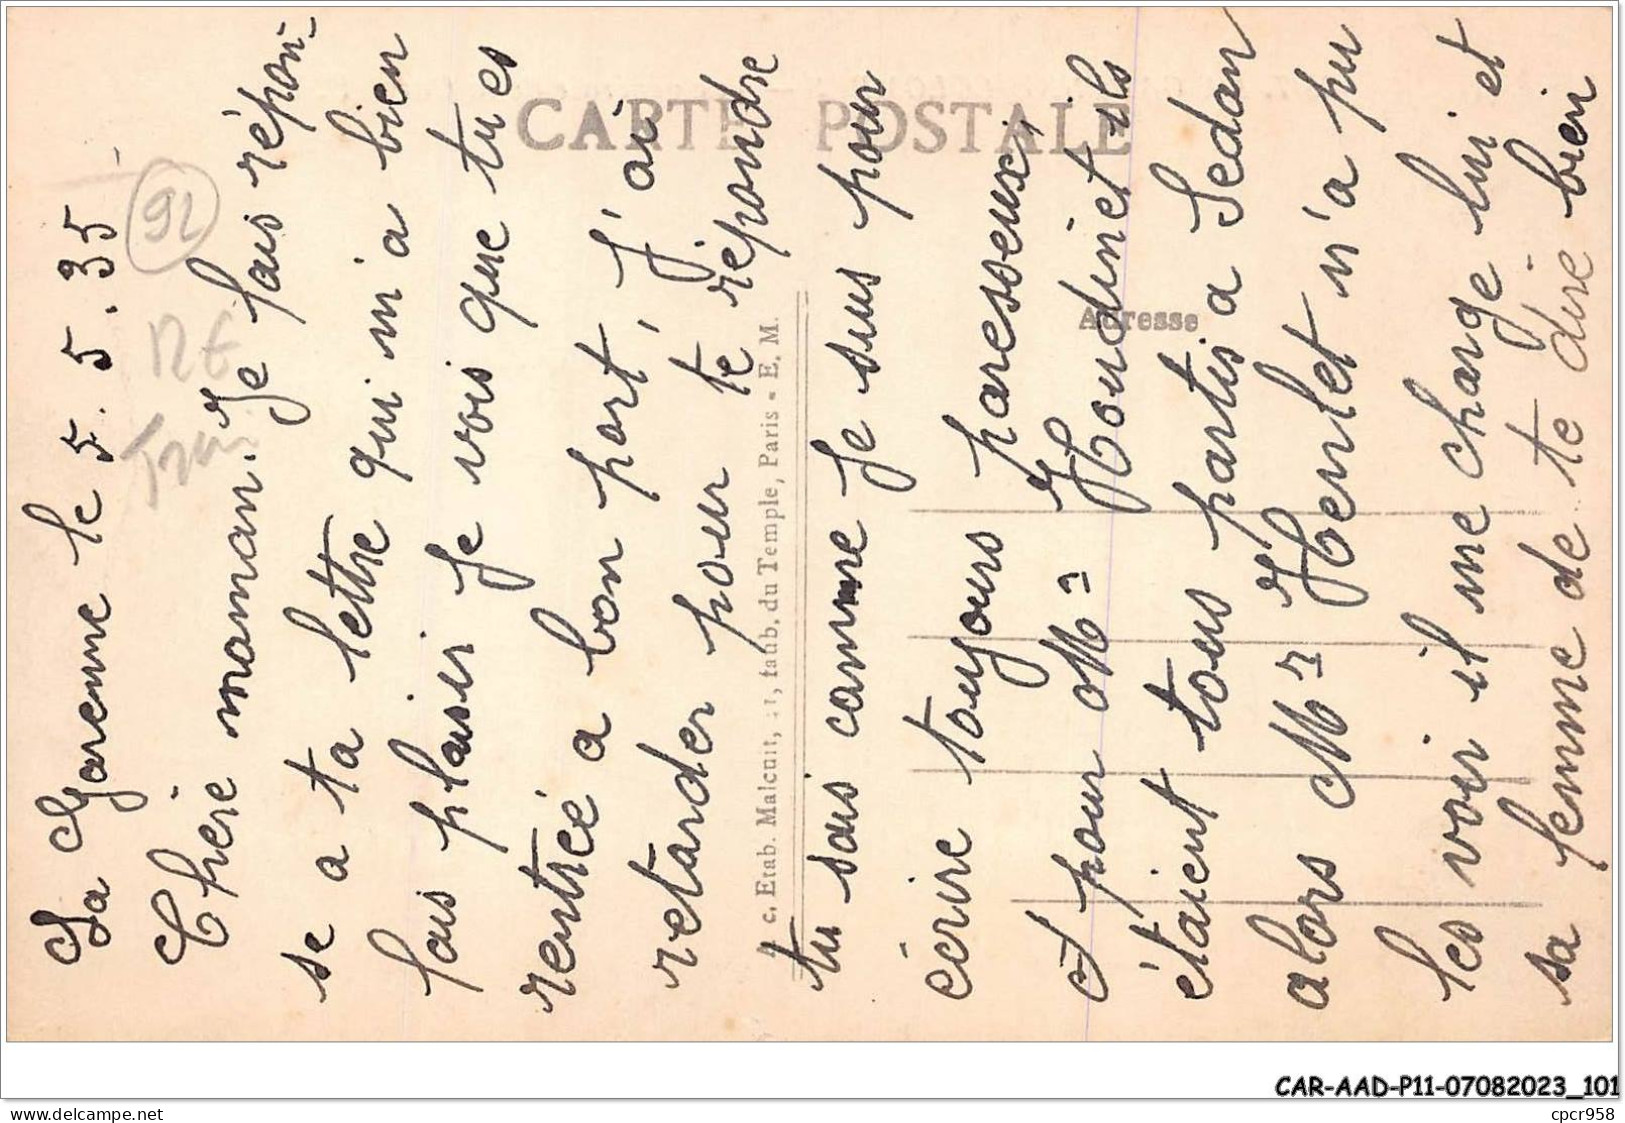 La Garenne le 5.5.35
Chère maman. Je fais répon-
se a ta lettre qui m'a bien
fais plaisir Je vois que tu es
rentrée a bon port, J'ai
retarder pour te répondre
tu sais comme Je suis pour
écrire toujours paresseuxi
pour Mr Houdinet ils
étaient tous partis a Sedan
alors Mr Henlet n'a pu
les voir il me charge lui et
sa femme de te dire bien
92
12€
CARTE POSTALE
Adresse
c. Etab. Malcuit, faub. du Temple, Paris - E. M.
CAR-AAD-P11-07082023_101
www.delcampe.net
cpcr958